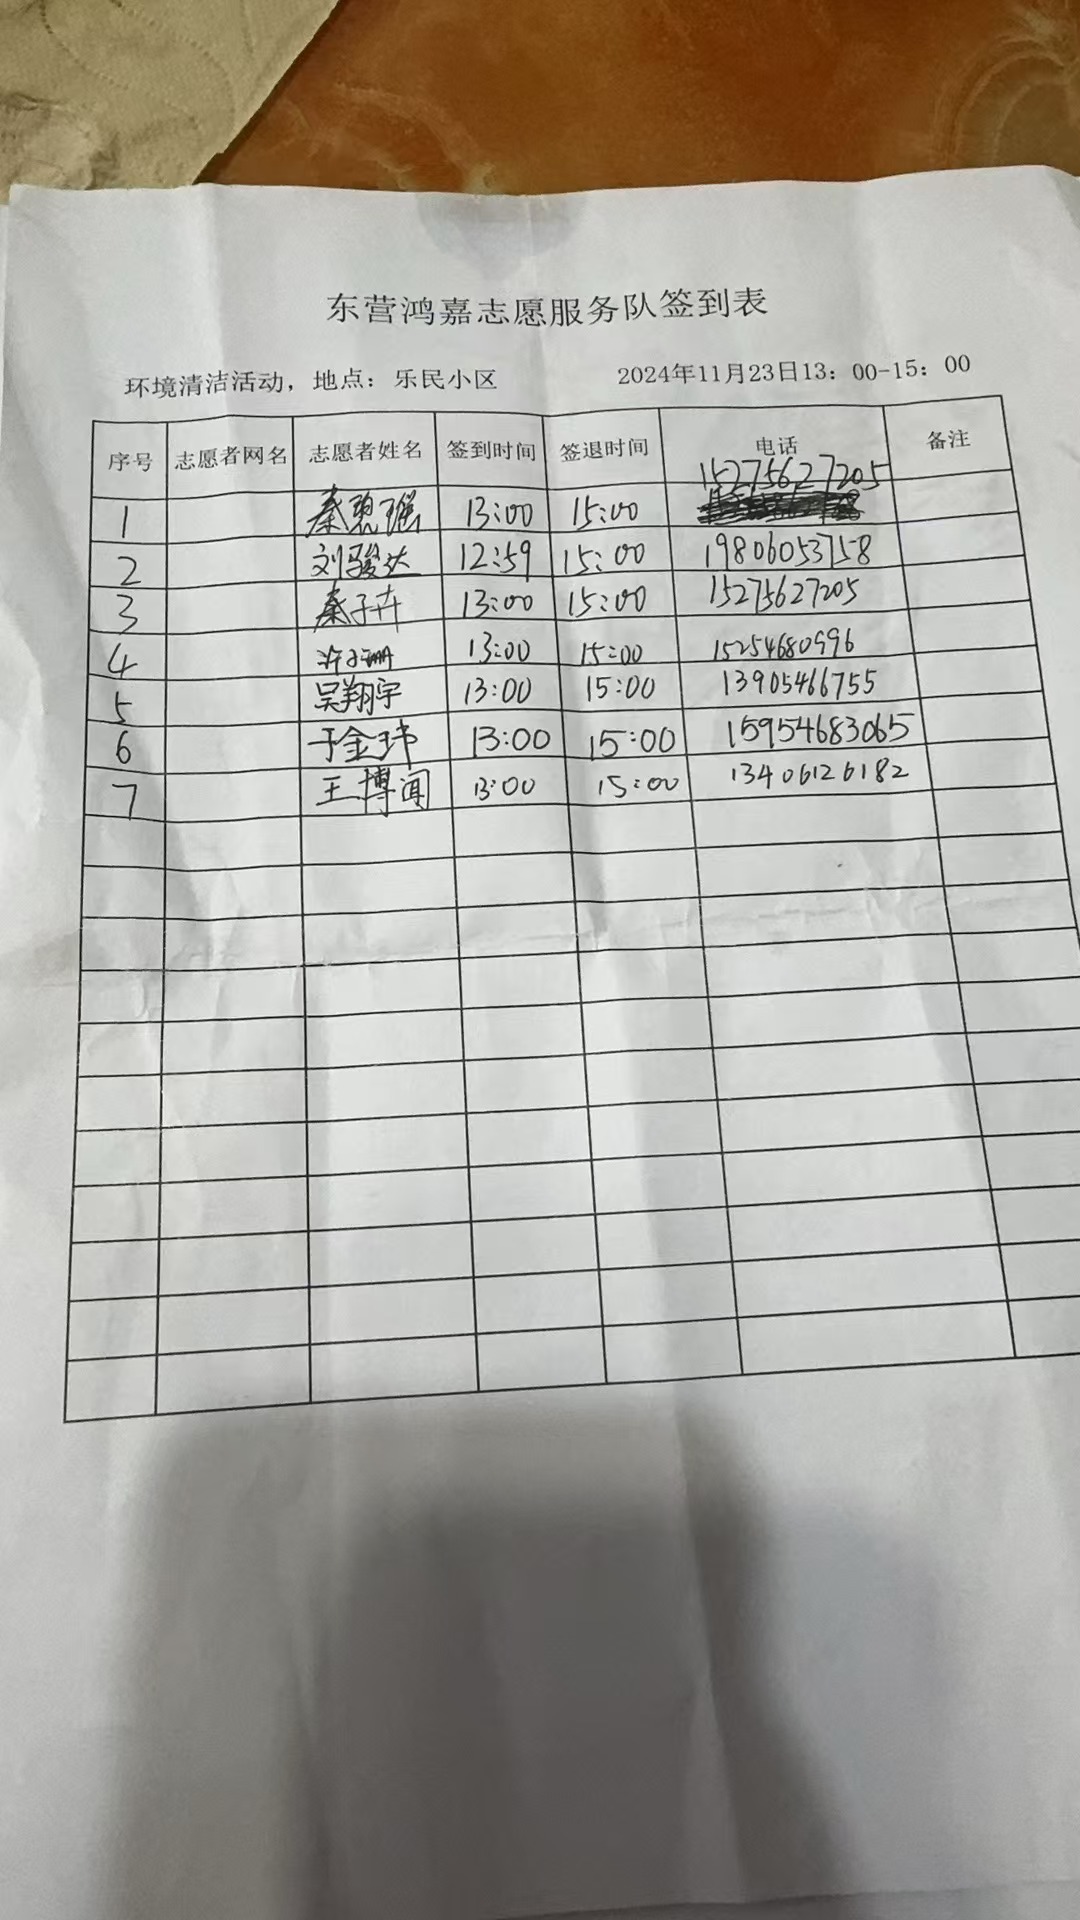 东营鸿嘉志愿服务队签到表
环境清洁活动，地点：乐民小区 2024年11月23日13：00-15：00
序号 志愿者网名 志愿者姓名 签到时间 签退时间 电话 备注
1 秦碧瑶 13:00 15:00 15275627205
2 刘骏达 12:59 15:00 19806053758
3 秦子卉 13:00 15:00 15275627205
4 许 13:00 15:00 15254680996
5 吴翔宇 13:00 15:00 13905466755
6 于金玮 13:00 15:00 15954683065
7 王博闻 13:00 15:00 13406126182